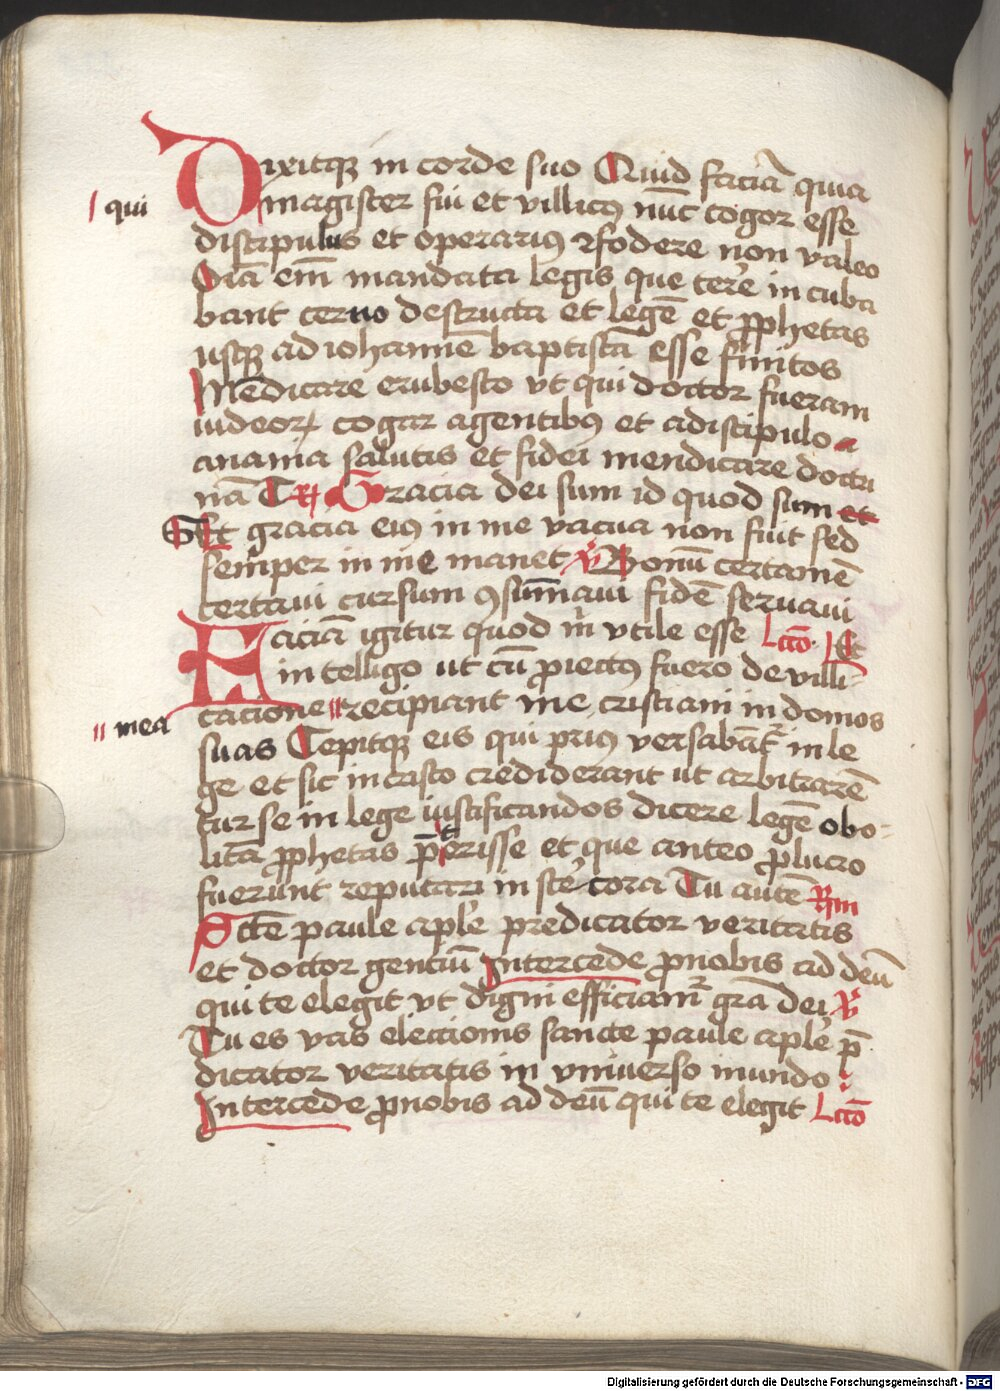 Dixitqꝫ in corde suo Quid faciā quia
qui
magister fui et villicꝰ nūc cogor esse
discipulus et operariꝰ ⁊ fodere non valeo
Oīa em̄ mandata legis que ter̄e incuba
bant cerno destructa et legē et ꝓphetas
usqꝫ ad iohannē baptistā esse finitos
Mēdicare erubesco vt qui doctor fueram
iudeoꝝ cogar a gentibꝰ et a discipulo
anania salutis et fidei mendicare doctri
nā Tu Gracia dei sum id quod sum et
Et gracia eiꝰ in me vacua non fuit sed
semper in me manet ℣ Bonū certamē
certavi cursum ꝯsūmavi fidē servavi
Faciā igitur quod m̄ vtile esse Lcō Et
intelligo ut cū ꝓiectꝰ fuero de villi
catione recipiant me cristiani in domos
mea
suas Cepitqꝫ eis qui priꝰ versabāt̄ in le
ge et sic in cristo crediderant ut arbitrarē
tur se in lege iustificandos dicere legē obo
litā ꝓphetas p̄terisse et que antea ꝓ lucro
fuerunt reputari in stercora Tu autē Rm
Scte paule aplē predicator veritatis
et doctor genciū Intercede ꝓ nobis ad deū
qui te elegit vt digni efficiam̄ gr̄a dei ℣
Tu es vas electionis sancte paule aplē p̄
dicator veritatis in vniuerso mundo
Intercede ꝓ nobis ad deū qui te elegit Lcō
Digitalisierung gefördert durch die Deutsche Forschungsgemeinschaft - DFG